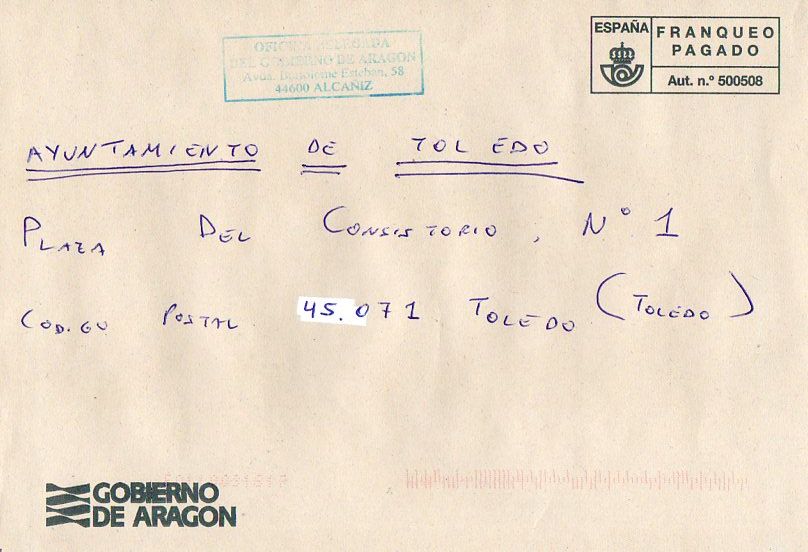 OFICINA DELEGADA
DEL GOBIERNO DE ARAGON
Avda. Bartolomé Esteban, 58
44600 ALCAÑIZ
ESPAÑA
FRANQUEO
PAGADO
Aut. n.º 500508
AYUNTAMIENTO DE TOLEDO
PLAZA DEL CONSISTORIO, Nº 1
CODIGO POSTAL 45.071 TOLEDO (TOLEDO)
GOBIERNO
DE ARAGON